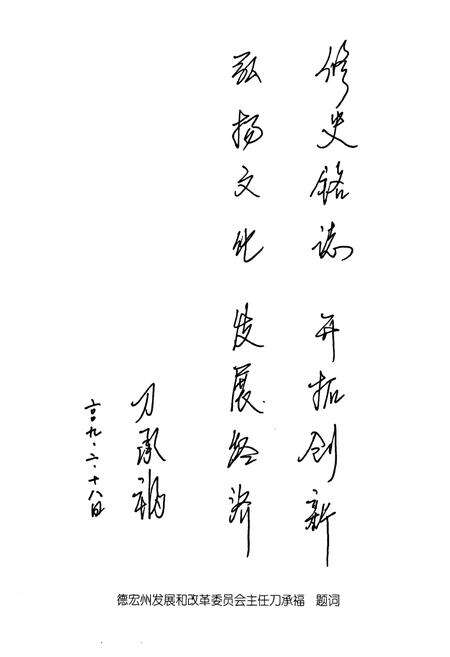 修史铭志 开拓创新
弘扬文化 发展经济
刀承福
二〇〇九.六.十八日
德宏州发展和改革委员会主任刀承福 题词